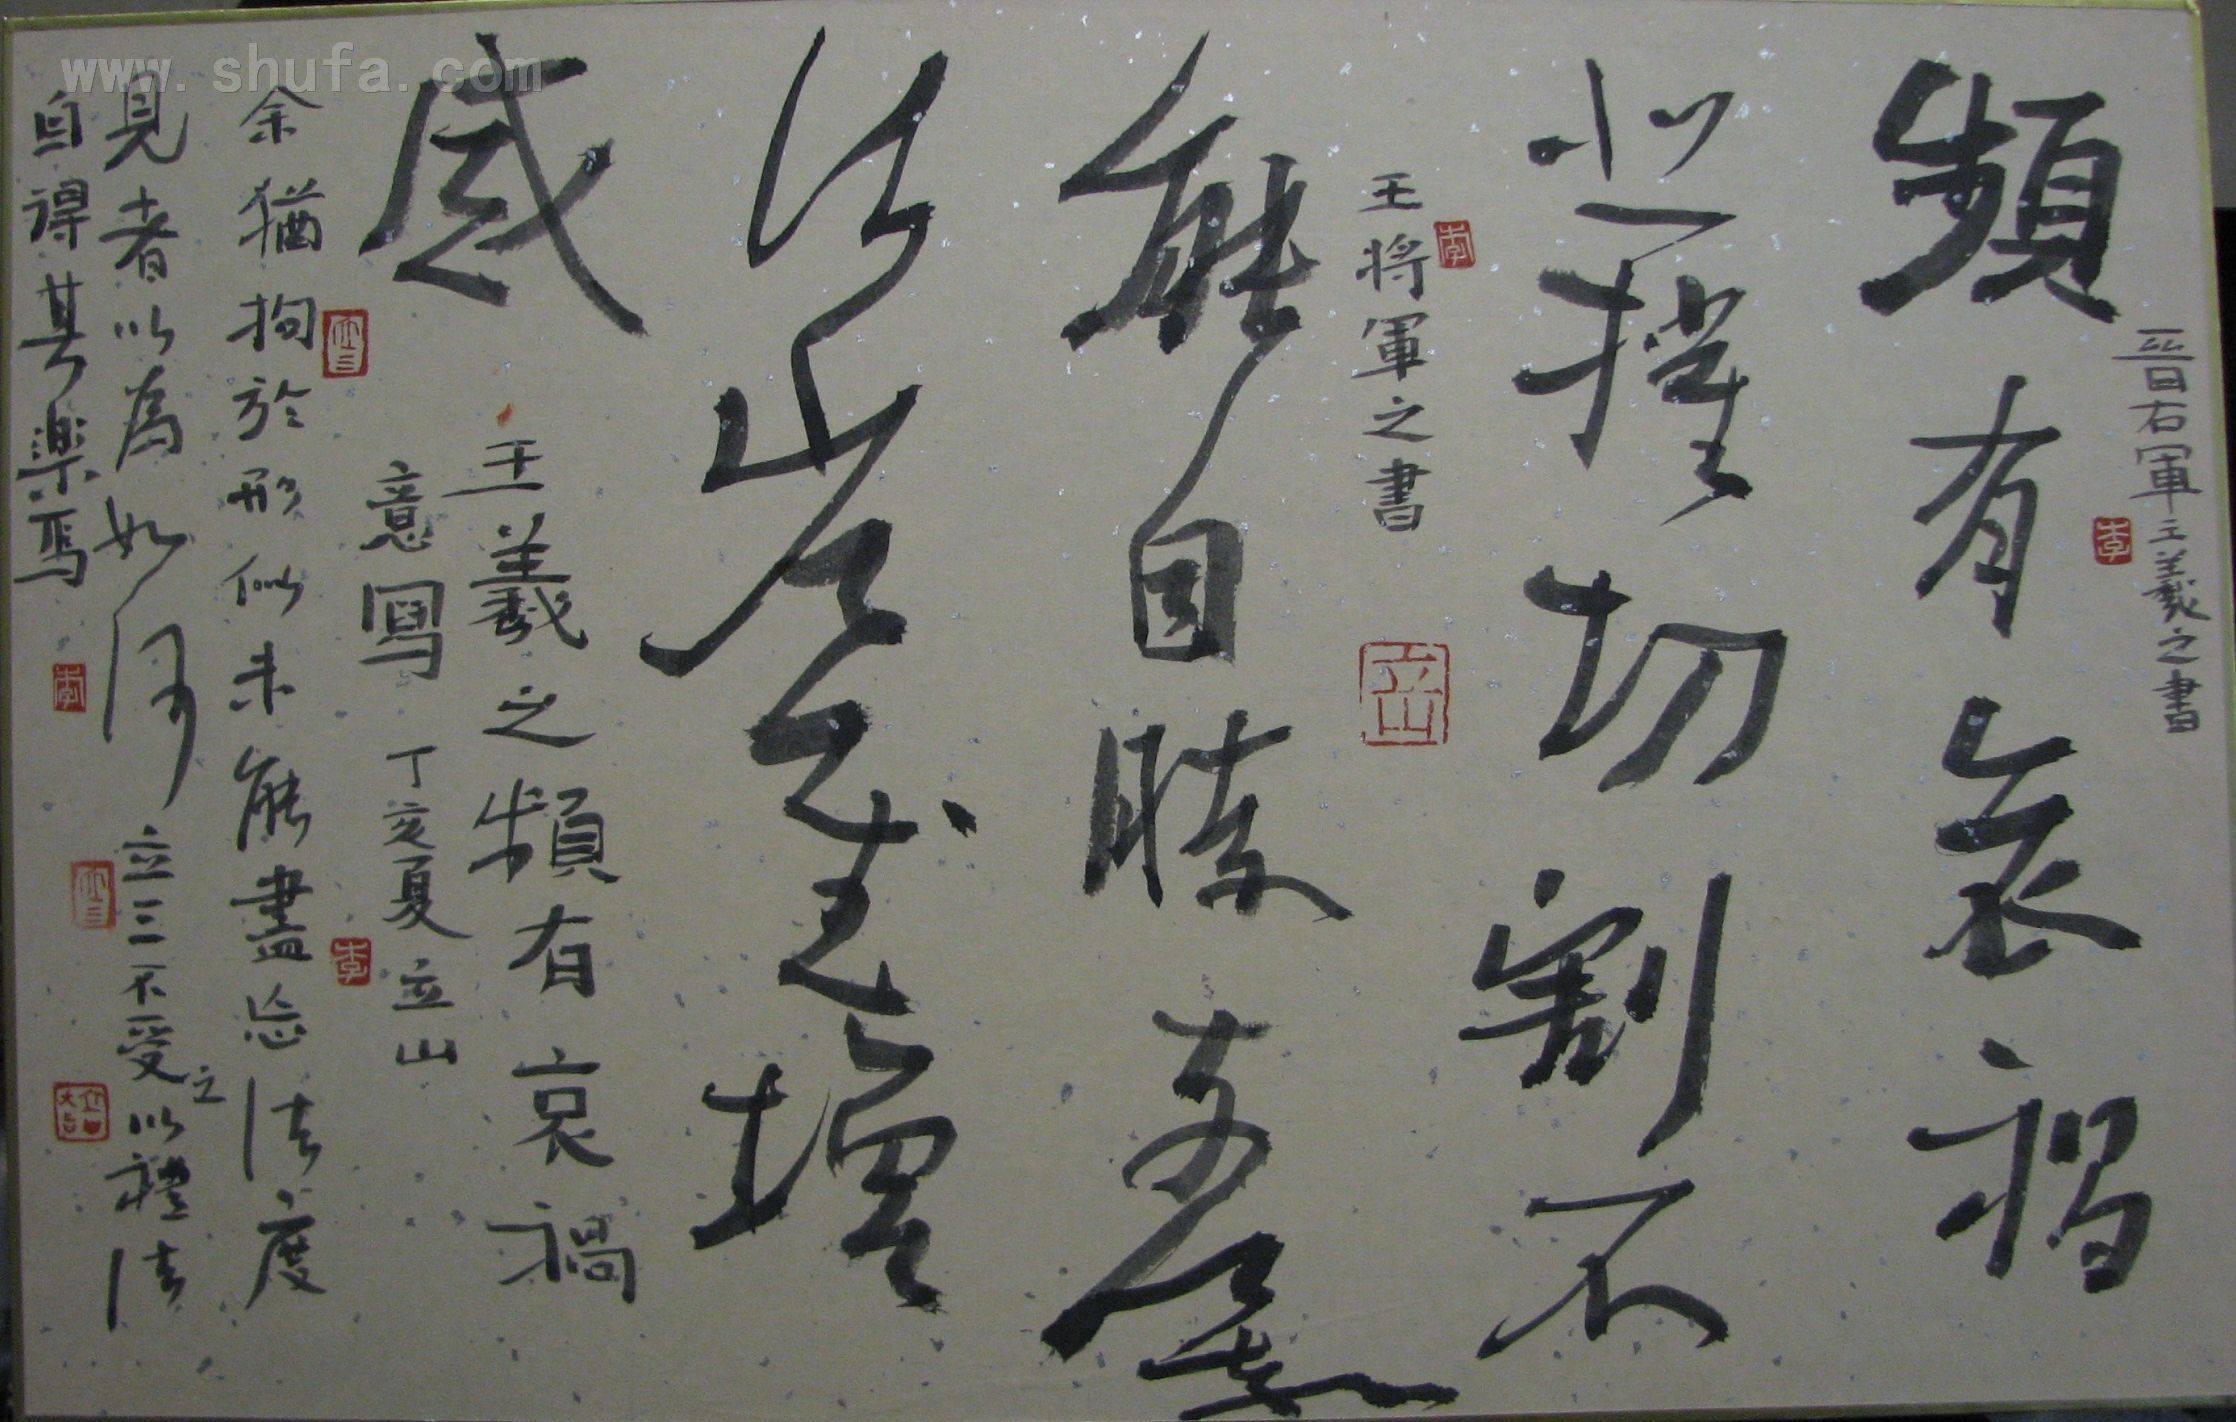 晉右軍王羲之書
頻有哀禍
悲摧切割不
王將軍之書
能自勝奈何奈
何省慰增
感
王羲之頻有哀禍
意寫 丁亥夏立山
余猶拘於形似未能盡忘法度
見者以為如何 立三不受之以禮法
自得其樂焉
李
李
立山
李
李
www.shufa.com